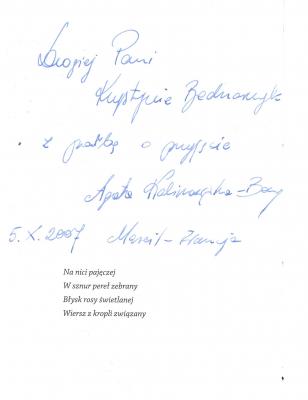 Drogiej Pani
Krystynie Bednarczyk
z prośbą o przyjęcie
Agata Kalinowska-Bouvy
5.X.2007 - Francja
Na nici pajęczej
W sznur pereł zebrany
Błysk rosy świetlanej
Wiersz z kropli związany